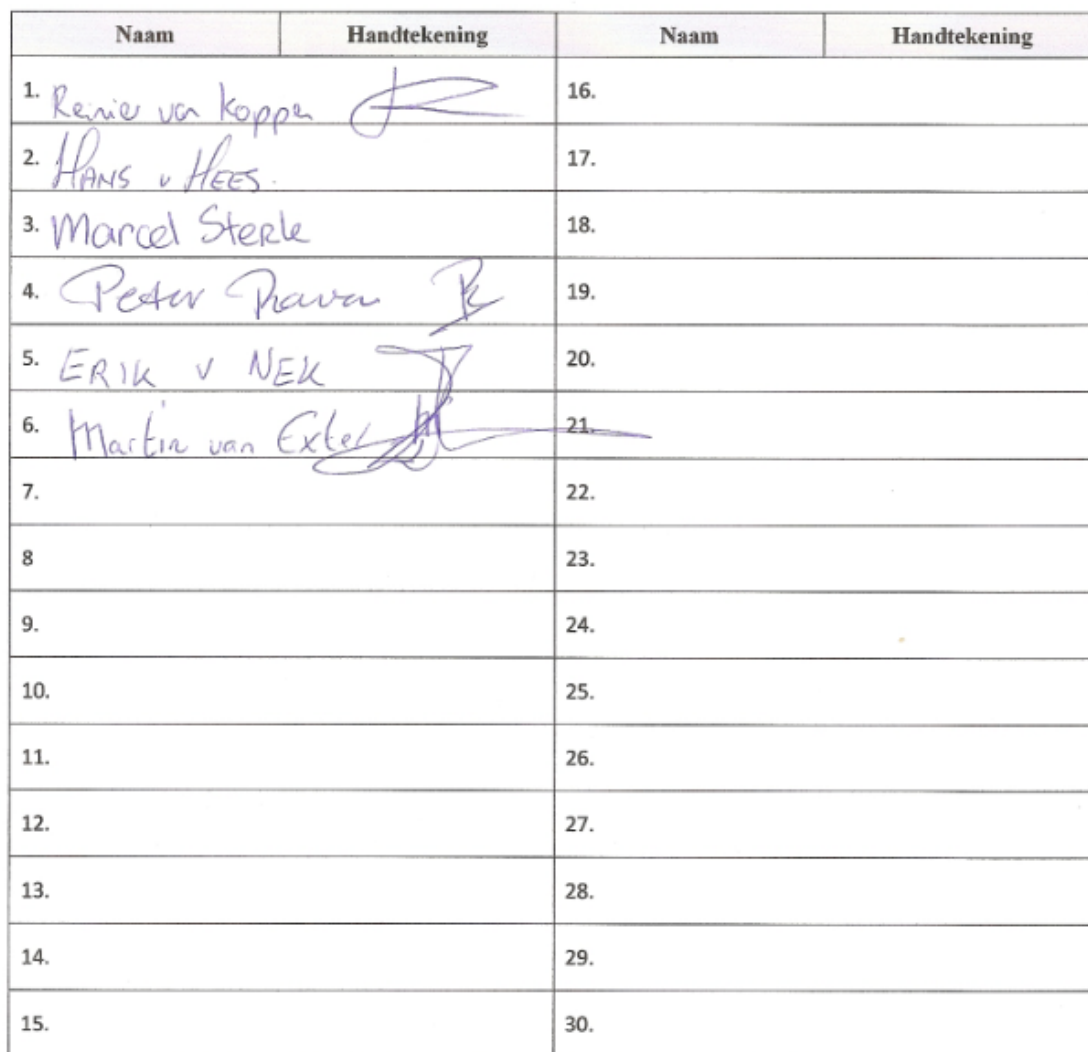 Naam Handtekening Naam Handtekening
1. Reinier van Koppen 16.
2. HANS v HEES. 17.
3. Marcel Sterk 18.
4. Peter 19.
5. ERIK V NEK 20.
6. Martin van Exter 21.
7. 22.
8 23.
9. 24.
10. 25.
11. 26.
12. 27.
13. 28.
14. 29.
15. 30.